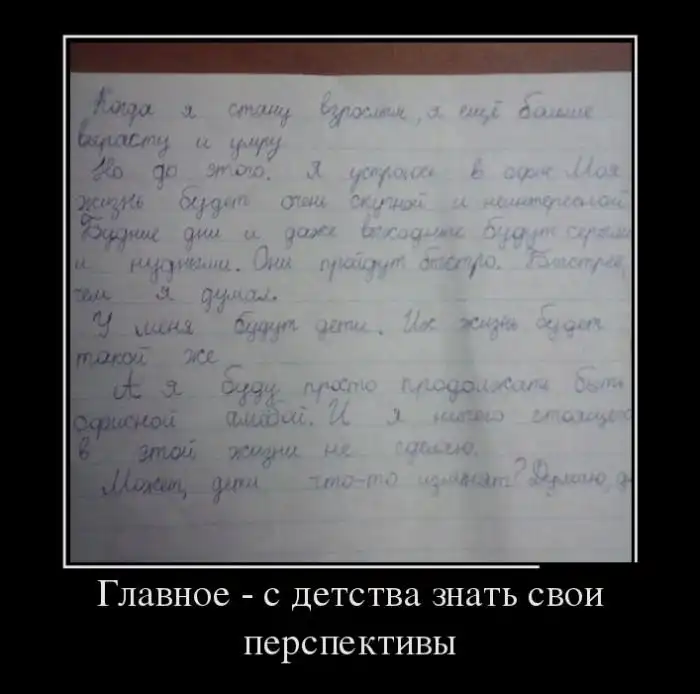 Когда я стану взрослым, я ещё больше
вырасту и умру
Но до этого. Я устроюсь в офис Моя
жизнь будет очень скучной и неинтересной
Будние дни и даже выходные будут серыми
и нудными. Они пройдут быстро. Быстрее,
чем я думал.
У меня будут дети. Их жизнь будет
такой же
А я буду просто продолжать быть
офисной амёбой. И я ничего стоящего
в этой жизни не сделаю.
Может, дети что-то изменят? Думаю, да
Главное - с детства знать свои
перспективы